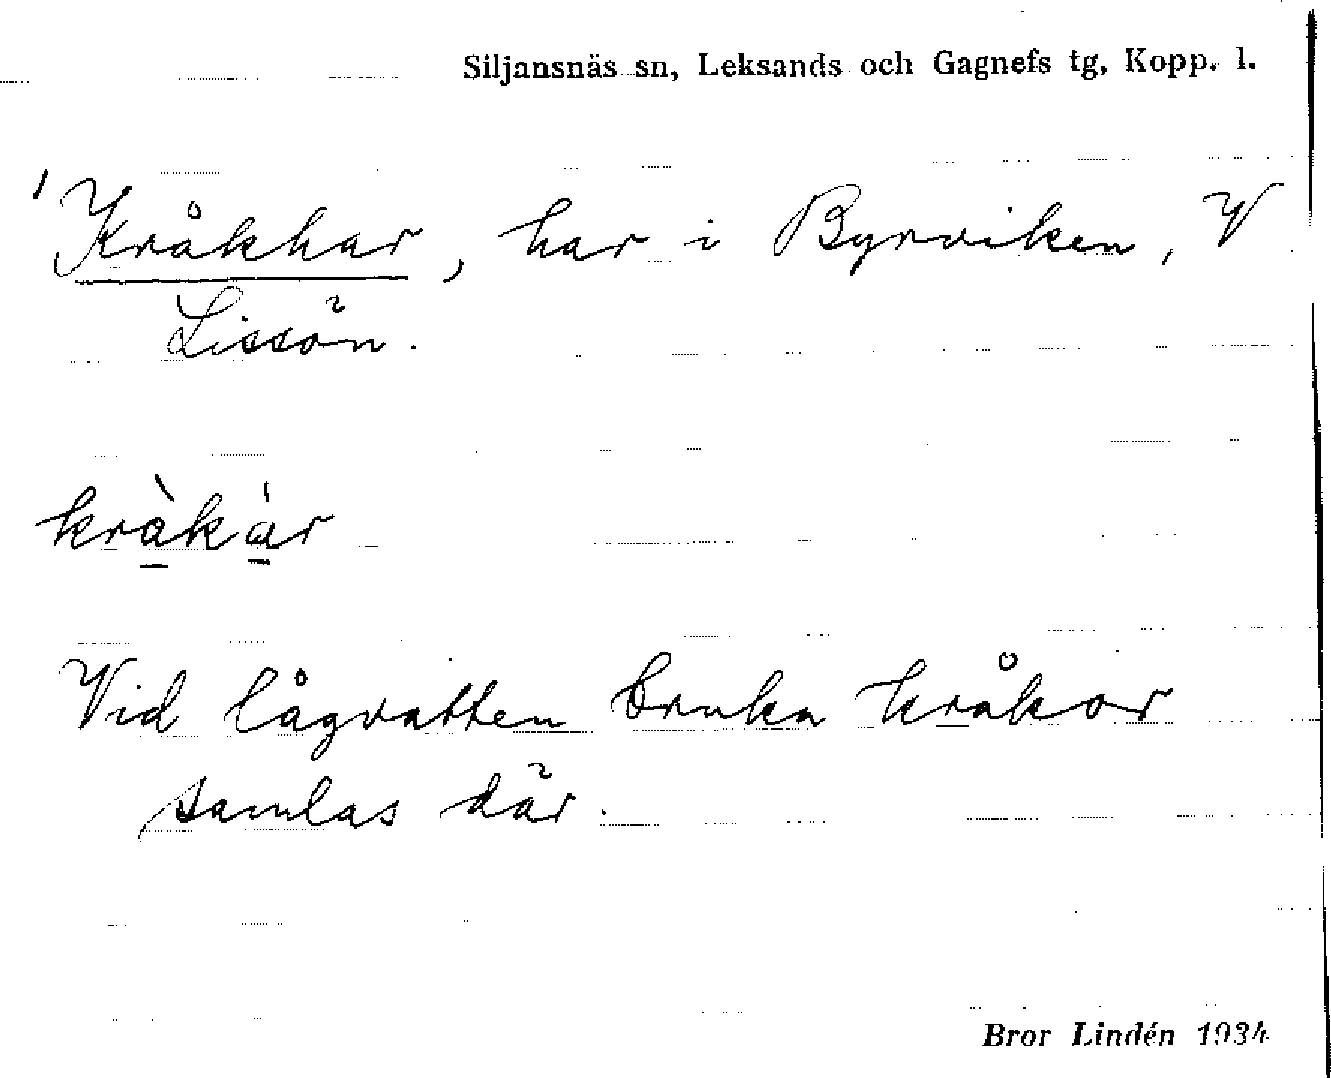 Siljansnäs sn, Leksands och Gagnefs tg, Kopp. l.
'Kråkhar, har i Byrviken, V
Lissön.
kràkár
Vid lågvatten bruka kråkor
samlas där.
Bror Lindén 1934